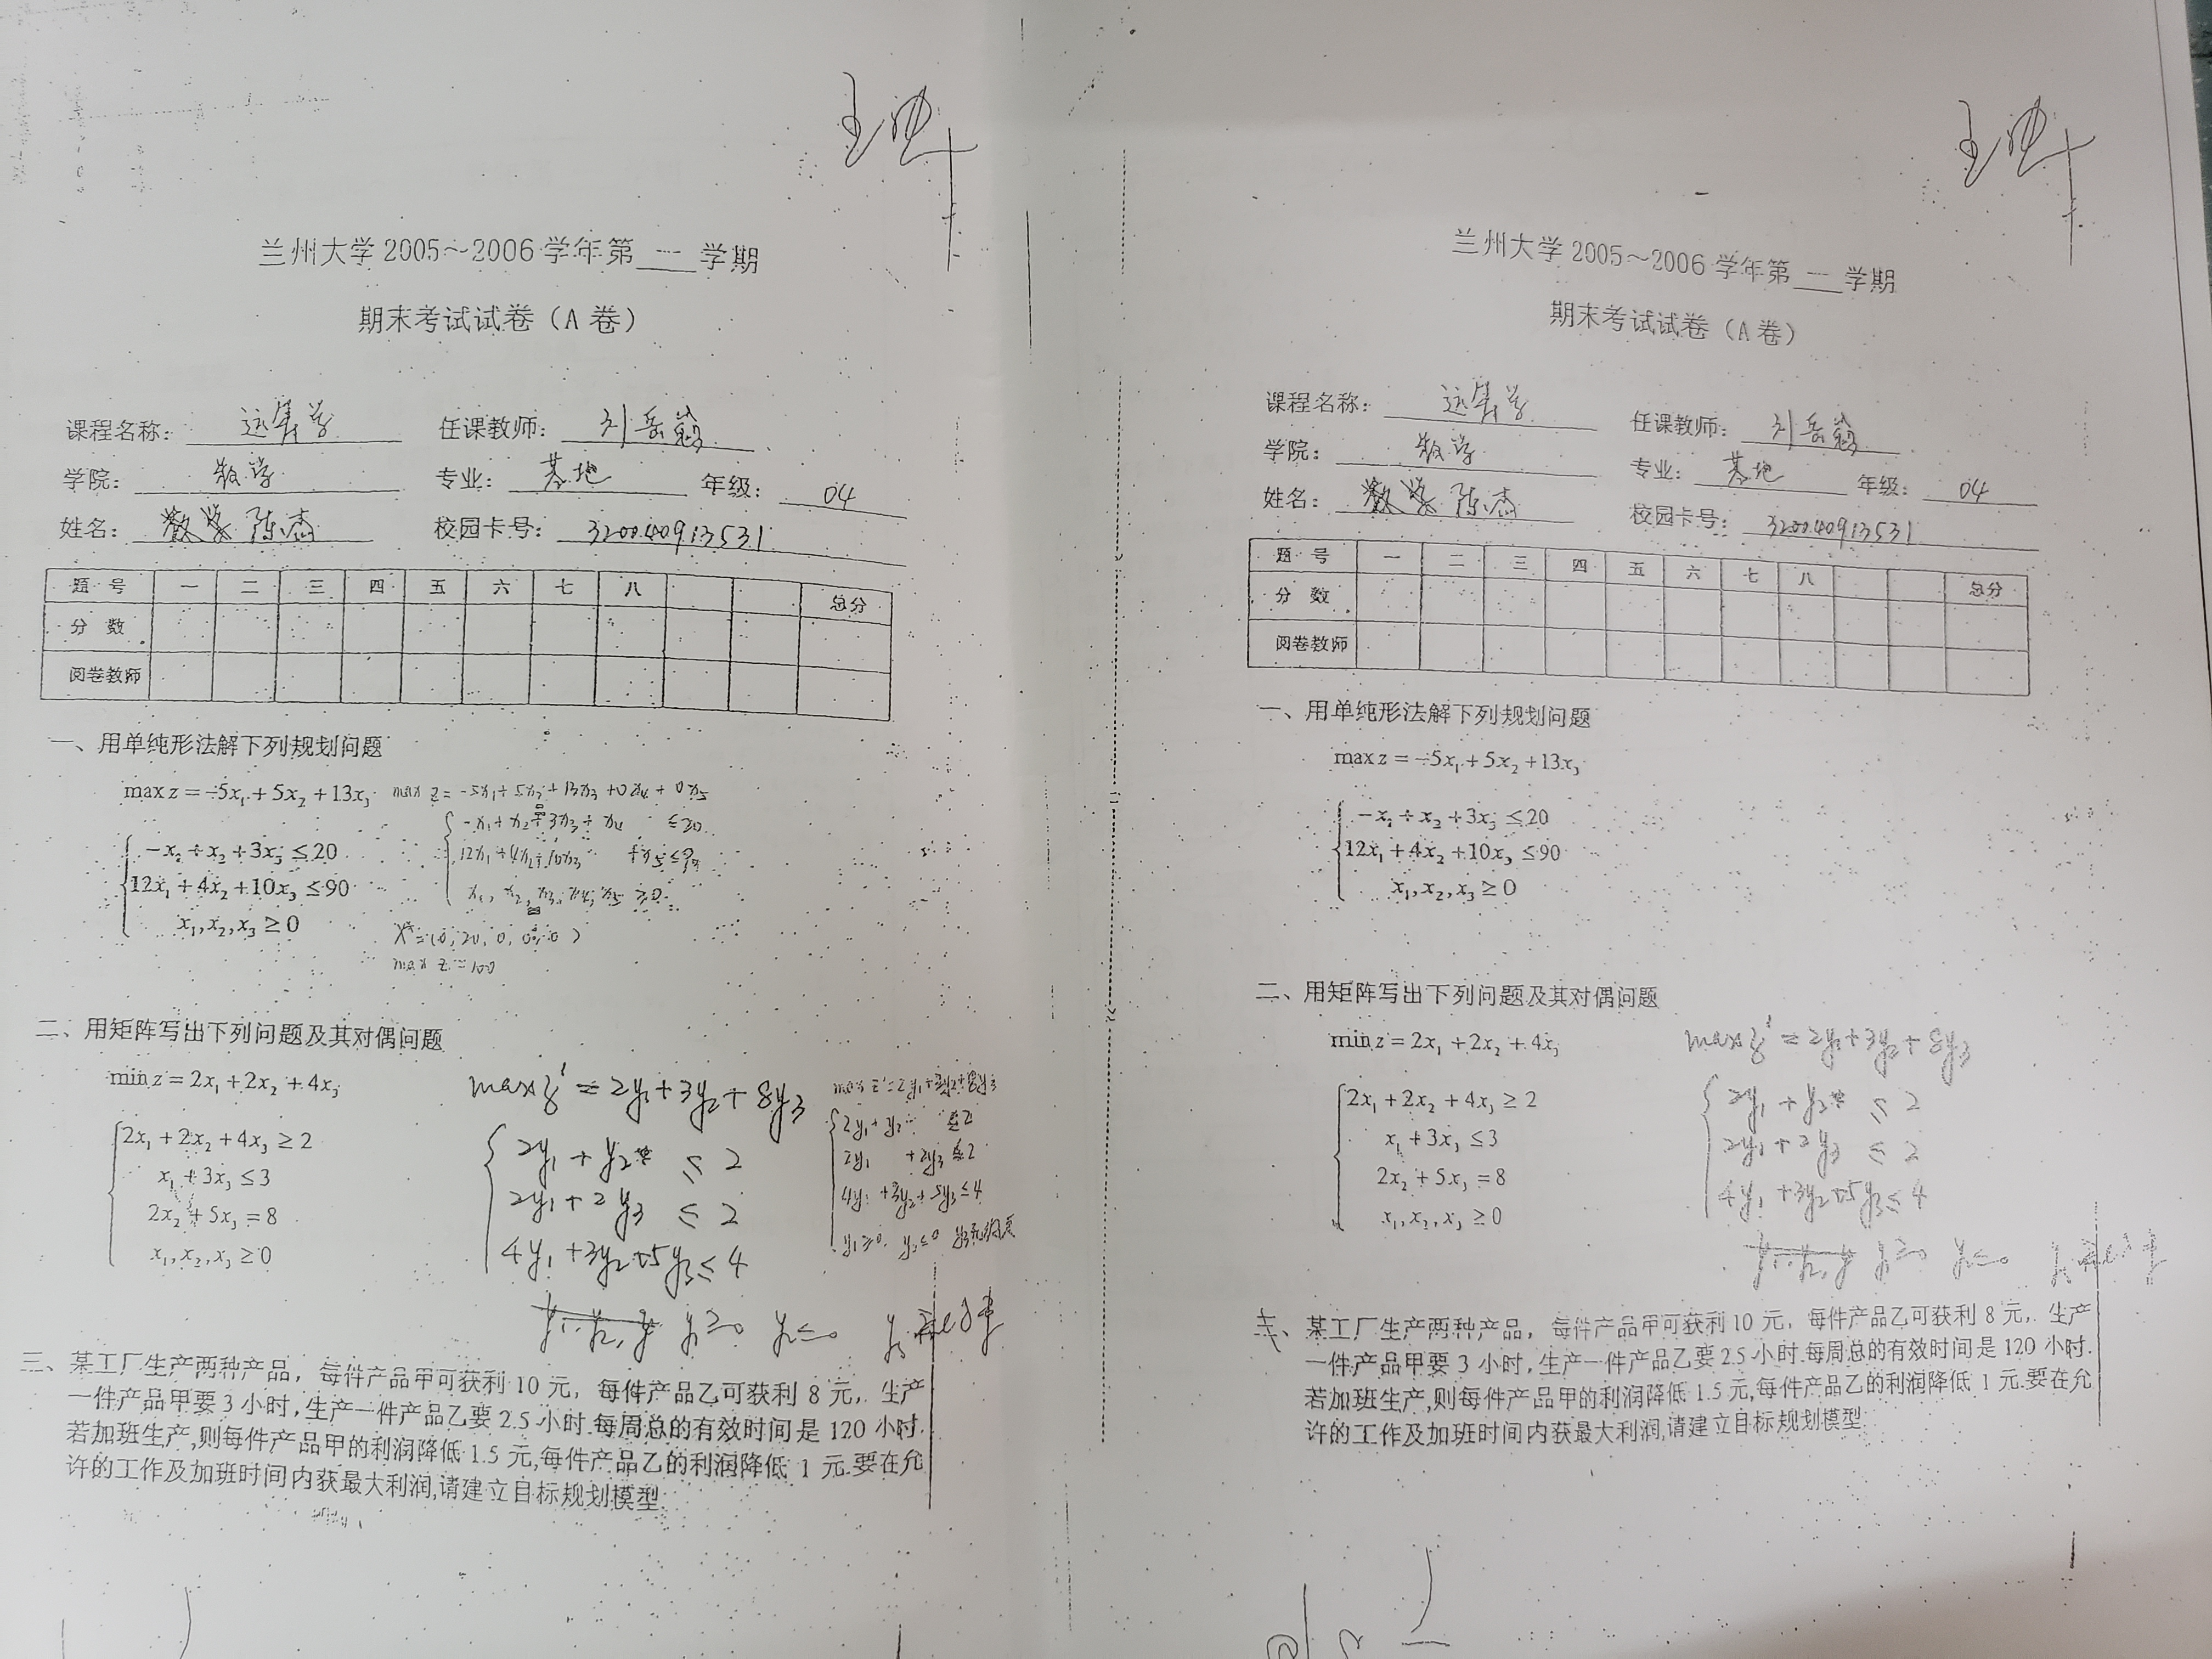 兰州大学 2005～2006 学年第 一 学期
期末考试试卷（A 卷）
课程名称： 运筹学 任课教师： 刘岳巍
学院： 数学 专业： 基地 年级： 04
姓名： 陈杰 校园卡号： 320040913531
题 号 一 二 三 四 五 六 七 八 总分
分 数
阅卷教师
一、用单纯形法解下列规划问题
max z = -5x₁ + 5x₂ + 13x₃ max z = -5x₁ + 5x₂ + 13x₃ + 0x₄ + 0x₅
-x₁ + x₂ + 3x₃ ≤ 20 -x₁ + x₂ + 3x₃ + x₄ ≤ 20
12x₁ + 4x₂ + 10x₃ ≤ 90 12x₁ + 4x₂ + 10x₃ + x₅ ≤ 90
x₁, x₂, x₃ ≥ 0 x₁, x₂, x₃, x₄, x₅ ≥ 0
X* = (0, 20, 0, 0, 0)
max z = 100
二、用矩阵写出下列问题及其对偶问题
min z = 2x₁ + 2x₂ + 4x₃ max z' = 2y₁ + 3y₂ + 8y₃ max z' = 2y₁ + 3y₂ + 8y₃
2x₁ + 2x₂ + 4x₃ ≥ 2 2y₁ + y₂ ≤ 2 2y₁ + y₂ ≤ 2
x₁ + 3x₃ ≤ 3 2y₁ + 2y₃ ≤ 2 2y₁ + 2y₃ ≤ 2
2x₂ + 5x₃ = 8 4y₁ + 3y₂ + 5y₃ ≤ 4 4y₁ + 3y₂ + 5y₃ ≤ 4
x₁, x₂, x₃ ≥ 0 y₁ ≥ 0 y₂ ≤ 0 y₁ ≥ 0, y₂ ≤ 0 y₃无约束
三、某工厂生产两种产品，每件产品甲可获利 10 元，每件产品乙可获利 8 元，. 生产
一件产品甲要 3 小时，生产一件产品乙要 2.5 小时.每周总的有效时间是 120 小时.
若加班生产,则每件产品甲的利润降低 1.5 元,每件产品乙的利润降低 1 元.要在允
许的工作及加班时间内获最大利润,请建立目标规划模型.
兰州大学 2005～2006 学年第 一 学期
期末考试试卷（A 卷）
课程名称： 运筹学 任课教师： 刘岳巍
学院： 数学 专业： 基地 年级： 04
姓名： 陈杰 校园卡号： 320040913531
题 号 一 二 三 四 五 六 七 八 总分
分 数
阅卷教师
一、用单纯形法解下列规划问题
max z = -5x₁ + 5x₂ + 13x₃
-x₁ + x₂ + 3x₃ ≤ 20
12x₁ + 4x₂ + 10x₃ ≤ 90
x₁, x₂, x₃ ≥ 0
二、用矩阵写出下列问题及其对偶问题
min z = 2x₁ + 2x₂ + 4x₃ max z' = 2y₁ + 3y₂ + 8y₃
2x₁ + 2x₂ + 4x₃ ≥ 2 2y₁ + y₂ ≤ 2
x₁ + 3x₃ ≤ 3 2y₁ + 2y₃ ≤ 2
2x₂ + 5x₃ = 8 4y₁ + 3y₂ + 5y₃ ≤ 4
x₁, x₂, x₃ ≥ 0 y₁ ≥ 0 y₂ ≤ 0
某工厂生产两种产品，每件产品甲可获利 10 元，每件产品乙可获利 8 元，. 生产
一件产品甲要 3 小时，生产一件产品乙要 2.5 小时.每周总的有效时间是 120 小时.
若加班生产,则每件产品甲的利润降低 1.5 元,每件产品乙的利润降低 1 元.要在允
许的工作及加班时间内获最大利润,请建立目标规划模型.